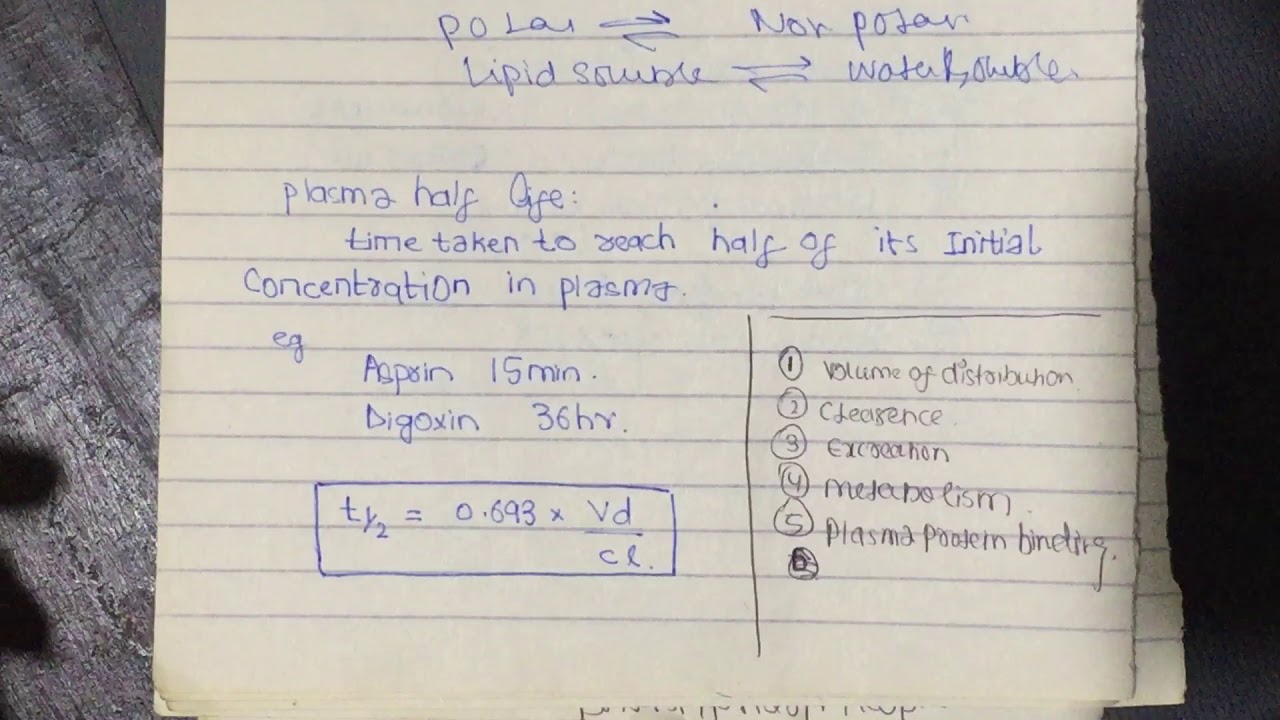 polar ⇌ Non polar
Lipid soluble ⇌ water soluble.
plasma half life:
time taken to reach half of its Initial
Concentration in plasma.
eg
Asprin 15min.
Digoxin 36hr.
t½ = 0.693 × Vd
cl.
① volume of distribution
② Clearence.
③ Excreation
④ metabolism.
⑤ plasma protein binding.